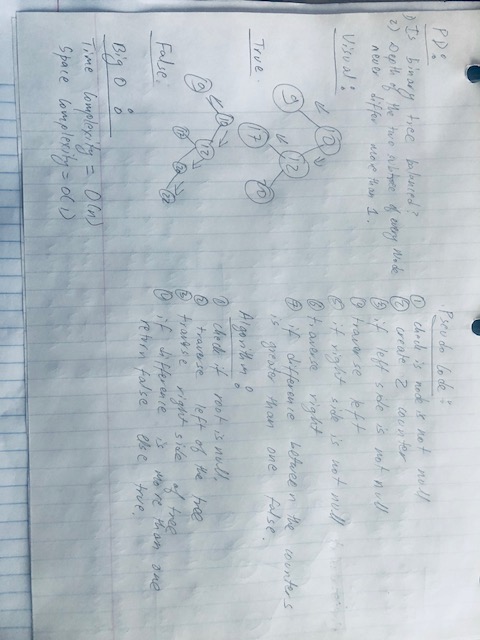 PD:
1) Is binary tree balanced?
2) Depth of the two subtrees of every node
never differ more than 1.
Visual:
10
9
12
17
20
True.
False.
Big O:
Time Complexity = O(n)
Space Complexity = O(1)
Pseudo Code:
① check is node is not null
② create 2 counter
③ if left side is not null
④ traverse left
⑤ if right side is not null
⑥ traverse right
⑦ if difference between the counters
is greater than one false.
Algorithm:
① check if root is null.
② traverse left of the tree
③ traverse right side of tree
④ if difference is more than one
return false else true.